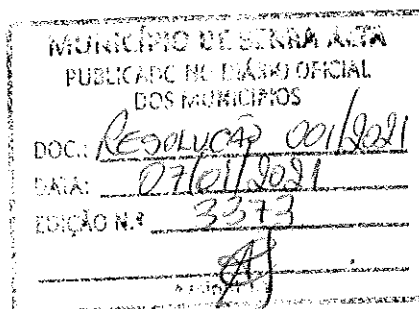 MUNICÍPIO DE SERRA ALTA
PUBLICADO NO DIÁRIO OFICIAL
DOS MUNICÍPIOS
DOC.: RESOLUÇÃO 001/2021
DATA: 07/01/2021
EDIÇÃO N.º 3373